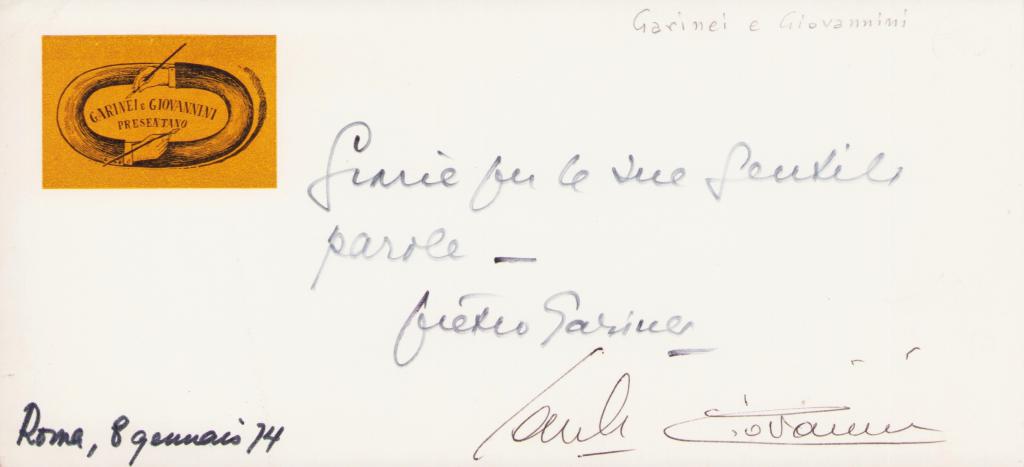 Garinei e Giovannini
GARINEI e GIOVANNINI
PRESENTANO
Grazie per le sue gentili
parole —
Pietro Garinei
Sandro Giovannini
Roma, 8 gennaio 74